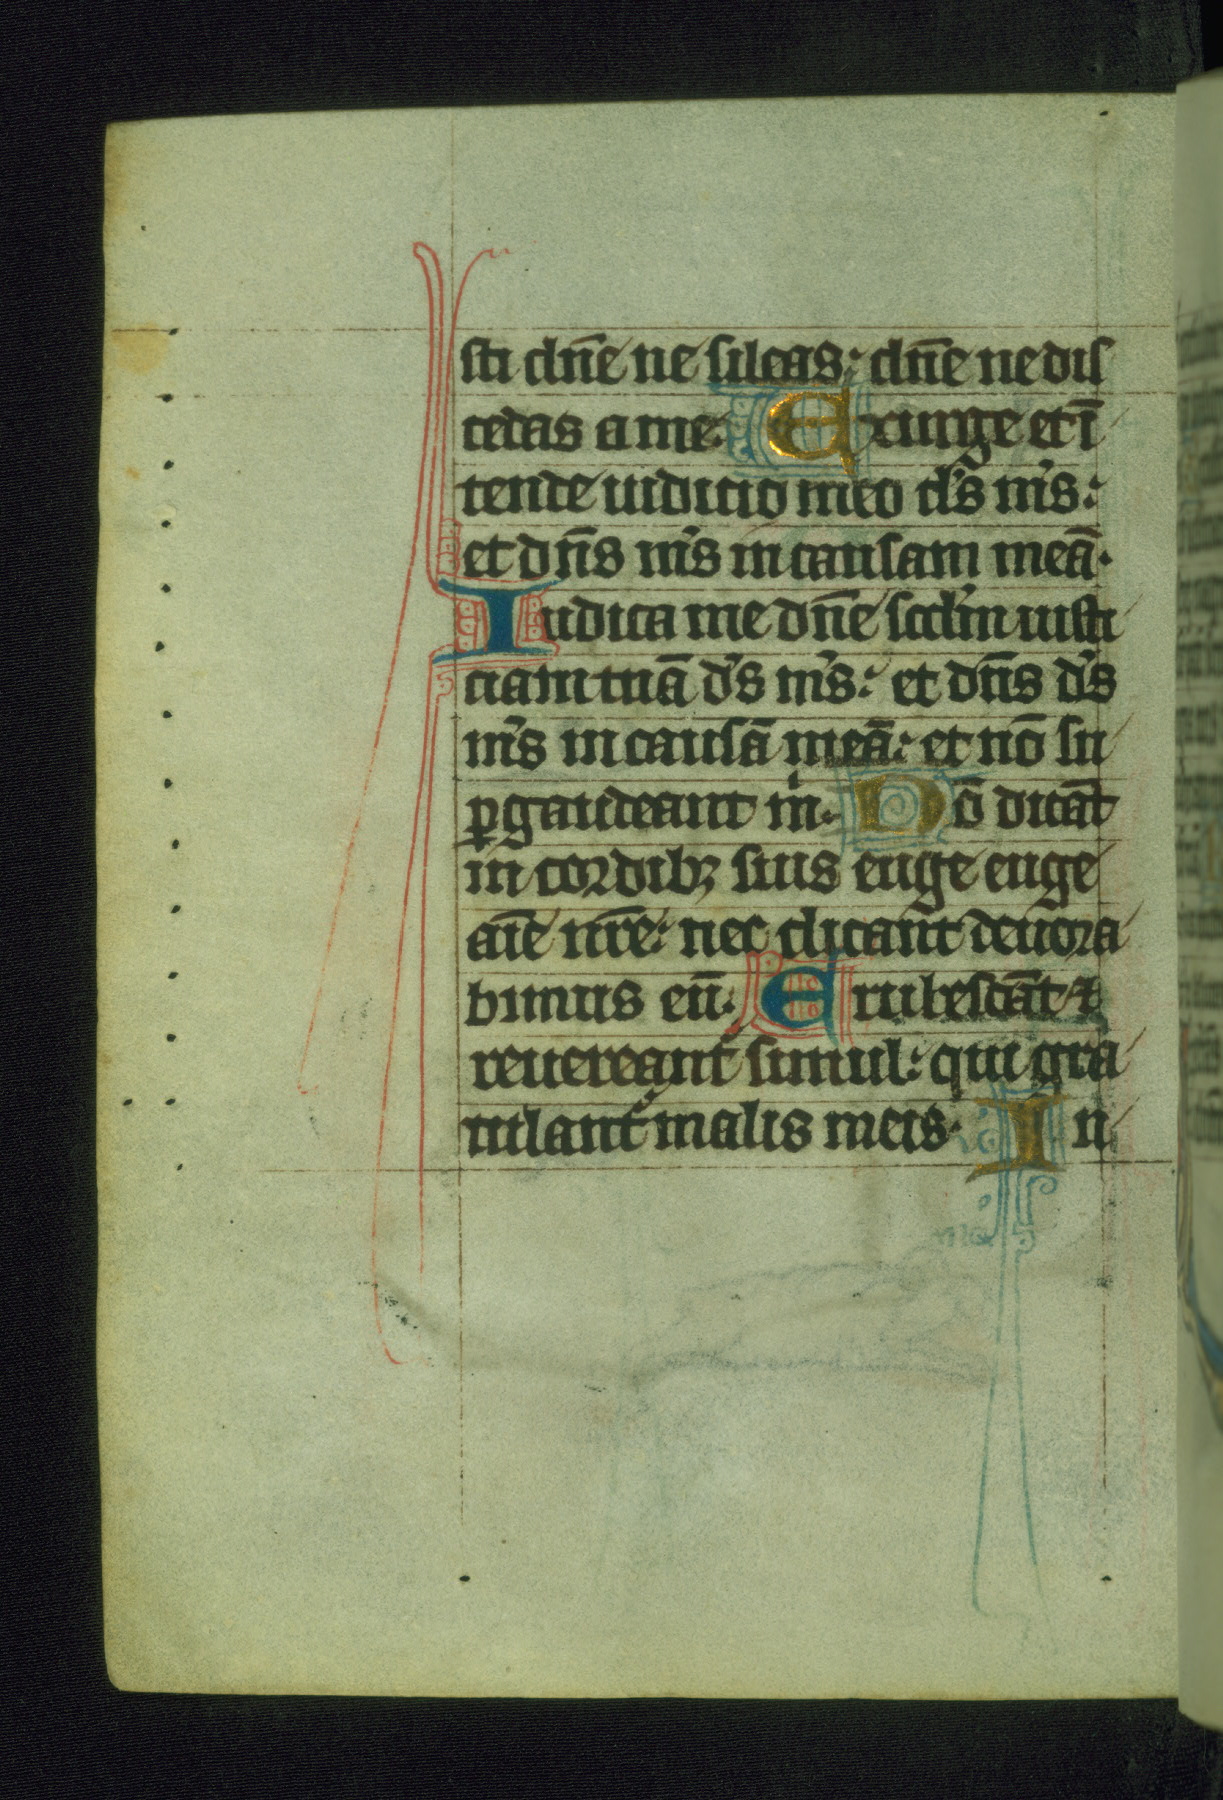 sti dn̄e ne sileas: dn̄e ne dis
cedas a me. Exurge et ī
tende iudicio meo d's m's:
et dn̄s m's in causam meā.
Iudica me dn̄e scd'm iusti
ciam tuā d's m's: et dn̄s d's
m's in causā meā: et nō su
ꝑgaudeant m̄. Nō dicāt
in cordibꝫ suis euge euge
aīe nr̄e: nec dicant deuora
bimus eū. Erubescāt ⁊
reuereant᷑ simul: qui gra
tulant᷑ malis meis. In